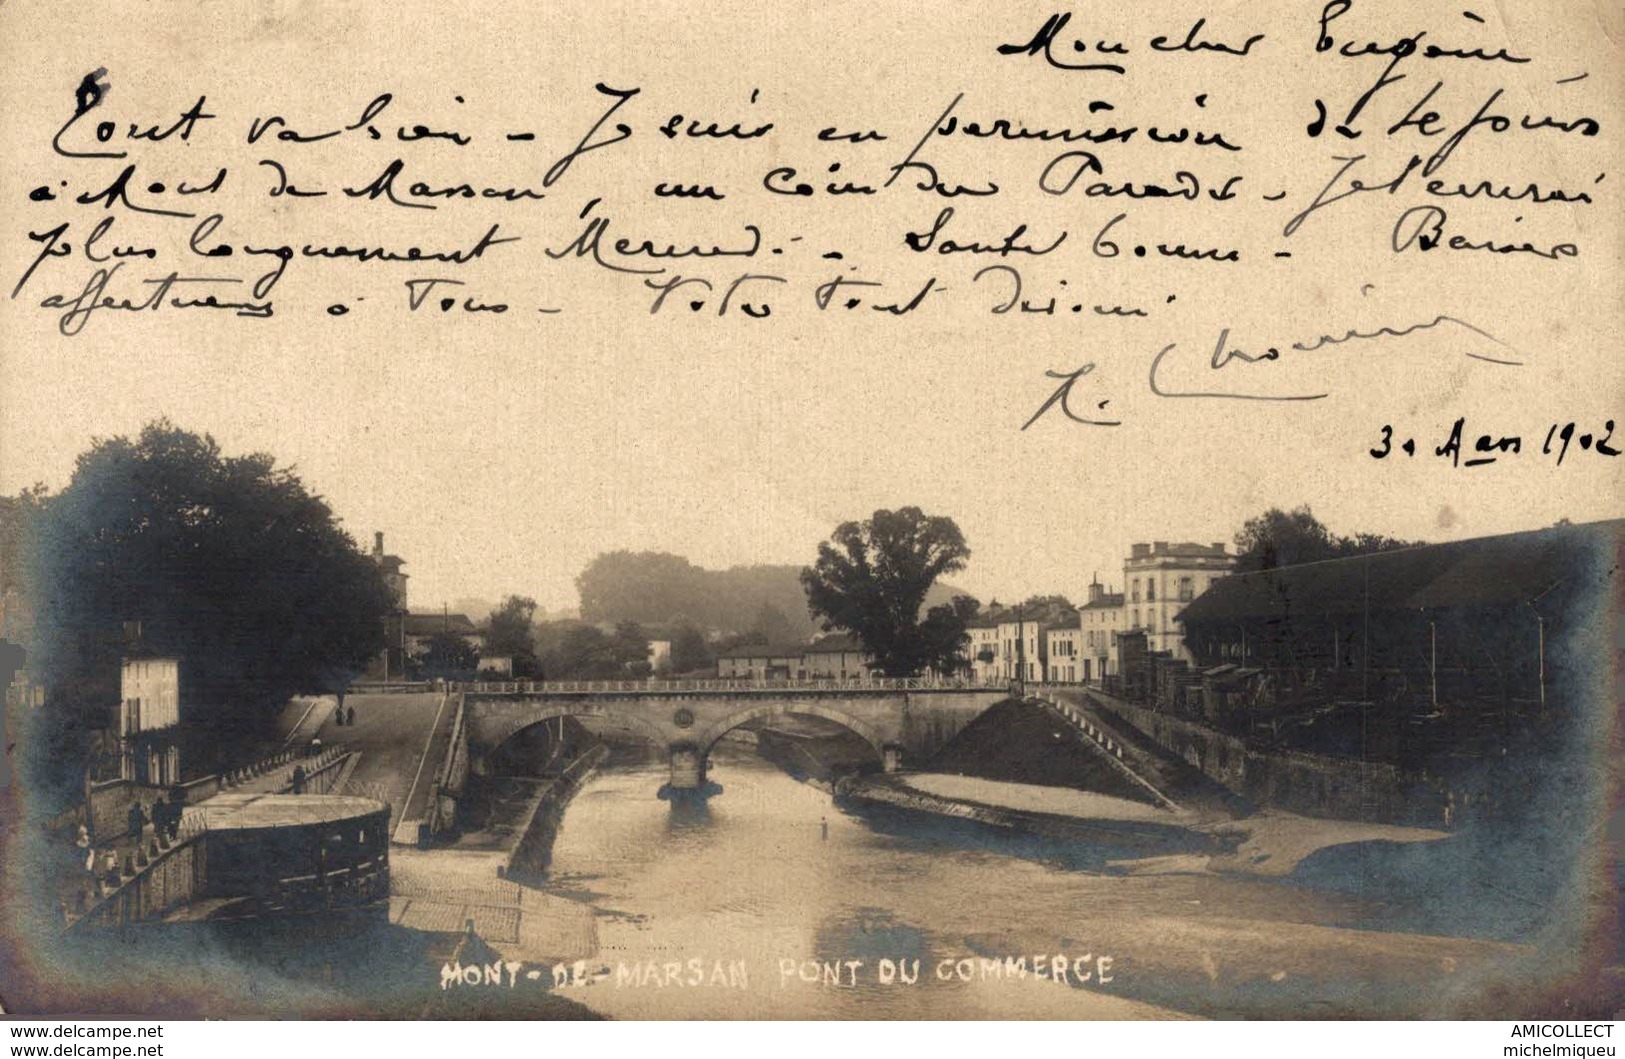 Mon cher Eugène
Tout va bien - Je suis en permission de 10 jours
à Mont de Marsan, un coin du Paradis - Je t'écrirai
plus longuement Mercredi - Santé bonne - Baisers
affectueux à Tous - Votre tout dévoué
30 Mars 1902
MONT-DE-MARSAN PONT DU COMMERCE
www.delcampe.net
www.delcampe.net
AMICOLLECT
michelmiqueu